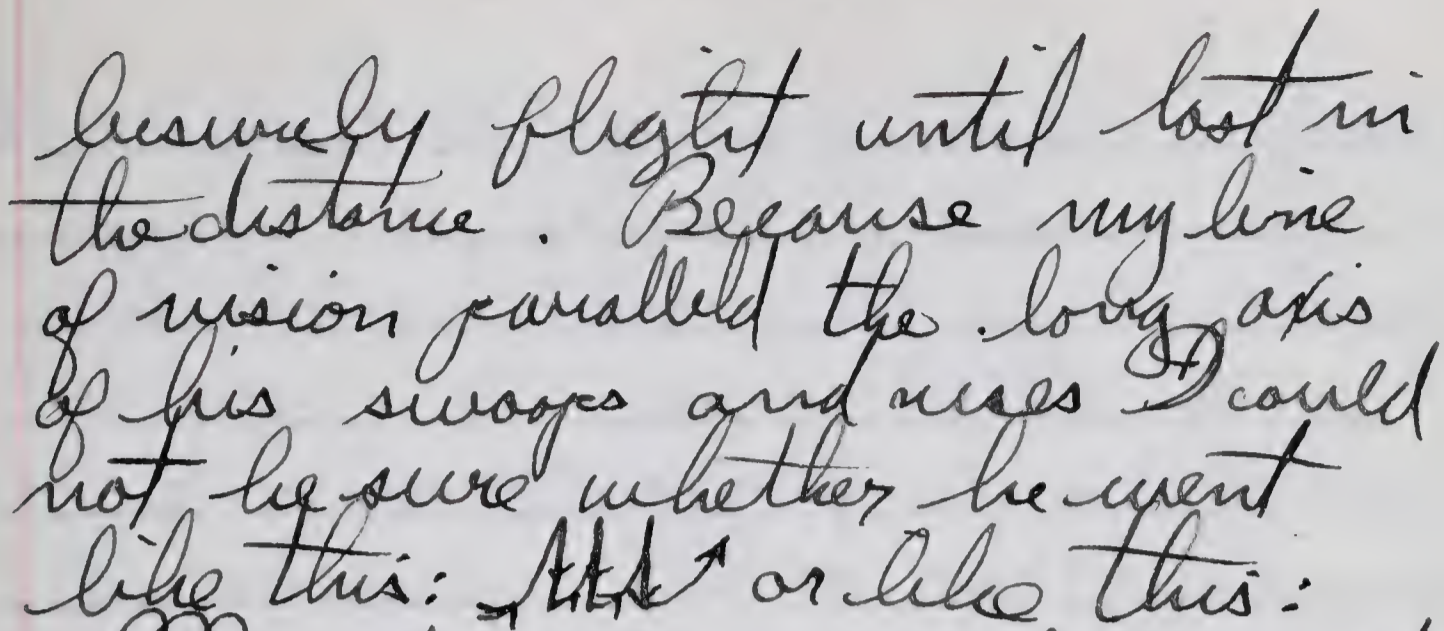 leisurely flight until lost in
the distance. Because my line
of vision paralleled the long axis
of his swoops and rises I could
not be sure whether he went
like this: or like this: